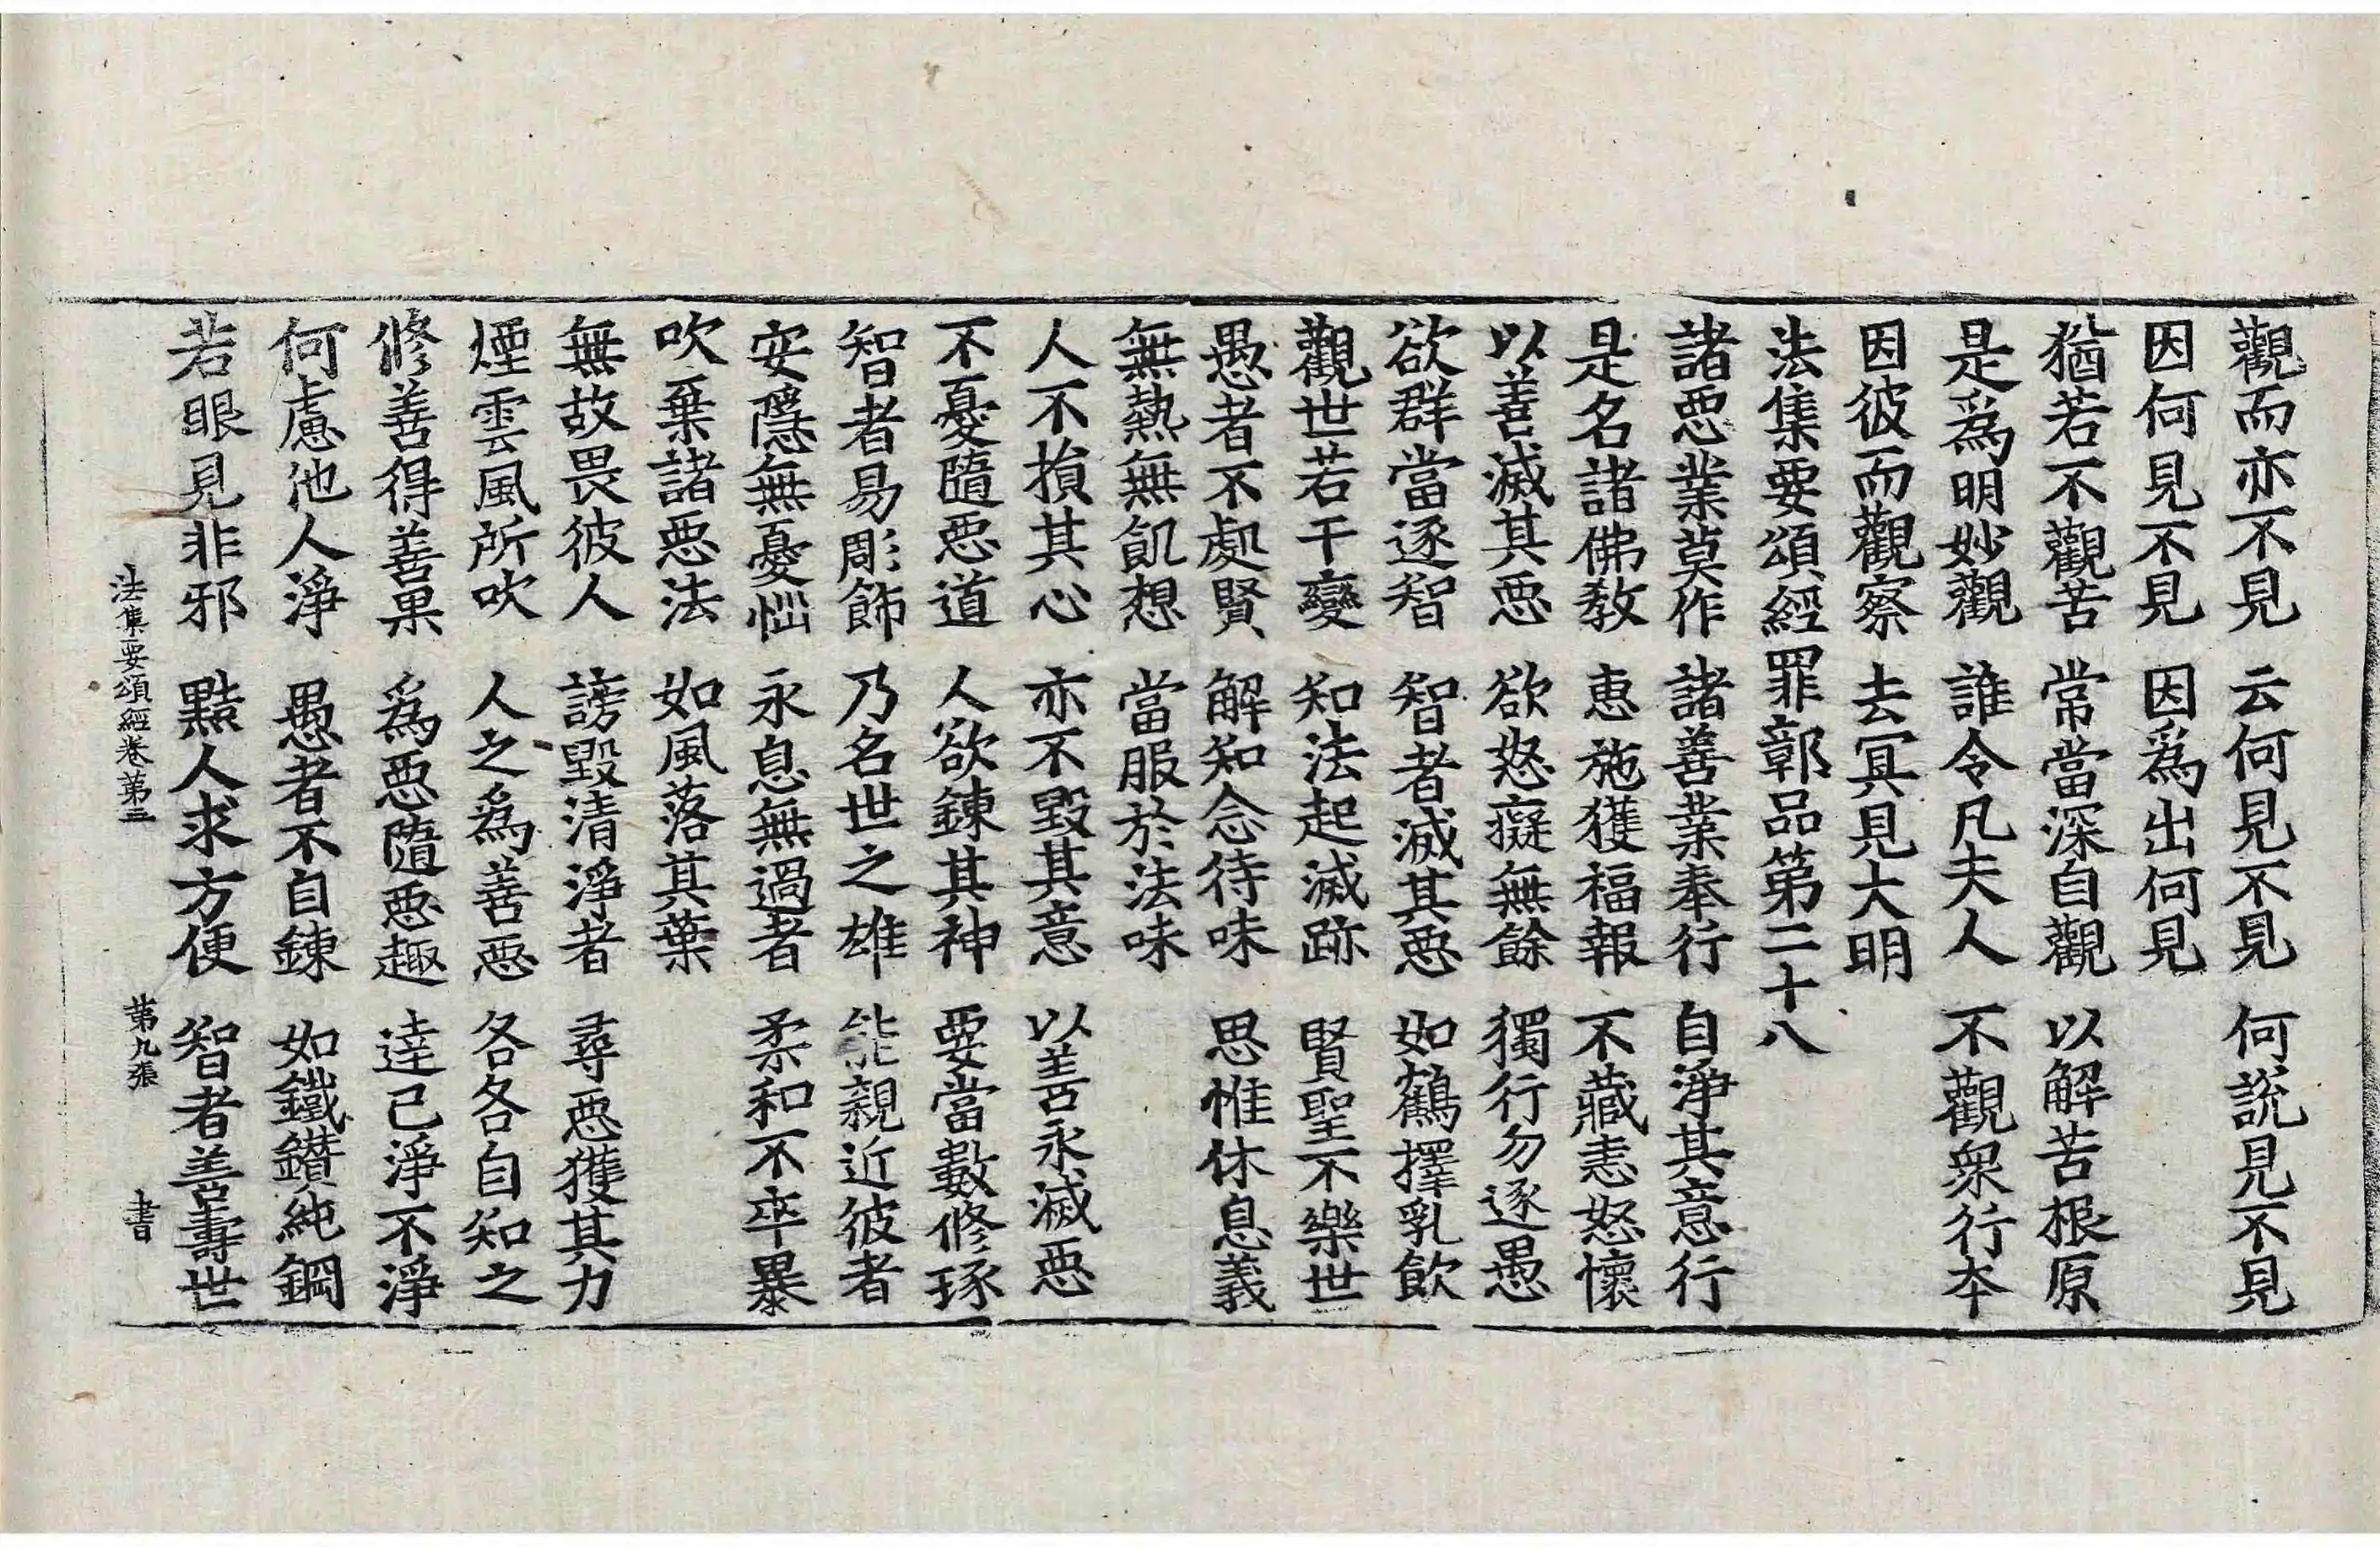 觀而亦不見 云何見不見 何說見不見
因何見不見 因爲出何見
猶若不觀苦 常當深自觀 以解苦根原
是爲明妙觀 誰令凡夫人 不觀衆行本
因彼而觀察 去冥見大明
法集要頌經罪鄣品第二十八
諸惡業莫作 諸善業奉行 自淨其意行
是名諸佛教 惠施獲福報 不藏恚怒懷
以善滅其惡 欲怒癡無餘 獨行勿逐愚
欲群當逐智 智者滅其惡 如鶴擇乳飲
觀世若干變 知法起滅跡 賢聖不樂世
愚者不處賢 解知念待味 思惟休息義
無熱無飢想 當服於法味
人不損其心 亦不毀其意 以善永滅惡
不憂隨惡道 人欲鍊其神 要當數修琢
智者易彫飾 乃名世之雄 能親近彼者
安隱無憂惱 永息無過者 柔和不卒暴
吹棄諸惡法 如風落其葉
無故畏彼人 謗毀清淨者 尋惡獲其力
煙雲風所吹 人之爲善惡 各各自知之
修善得善果 爲惡隨惡趣 達己淨不淨
何慮他人淨 愚者不自鍊 如鐵鑽純鋼
若眼見非邪 黠人求方便 智者善壽世
法集要頌經卷第三 第九張 書